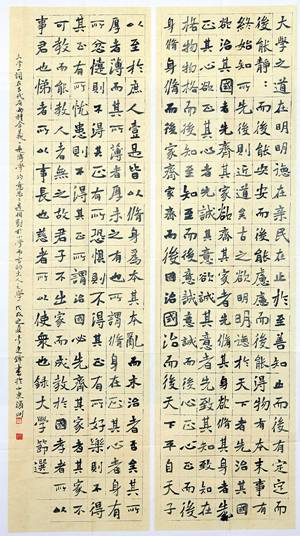 大學之道在明明德在親民在止於至善知止而后有定定而
后能靜靜而后能安安而后能慮慮而后能得物有本末事有
終始知所先後則近道矣古之欲明明德於天下者先治其國
欲治其國者先齊其家欲齊其家者先脩其身欲脩其身者先
正其心欲正其心者先誠其意欲誠其意者先致其知致知在
格物物格而后知至知至而后意誠意誠而后心正心正而后
身脩身脩而后家齊家齊而后國治國治而后天下平自天子
以至於庶人壹是皆以脩身為本其本亂而末治者否矣其所
厚者薄而其所薄者厚未之有也所謂脩身在正其心者身有
所忿懥則不得其正有所恐懼則不得其正有所好樂則不得
其正有所憂患則不得其正所謂治國必先齊其家者其家不
可教而能教人者無之故君子不出家而成教於國孝者所以
事君也悌者所以事長也慈者所以使衆也錄大學節選
大學一詞在古代有兩種含義一是博學的意思二是相對於小學而言的大人之學戊戌